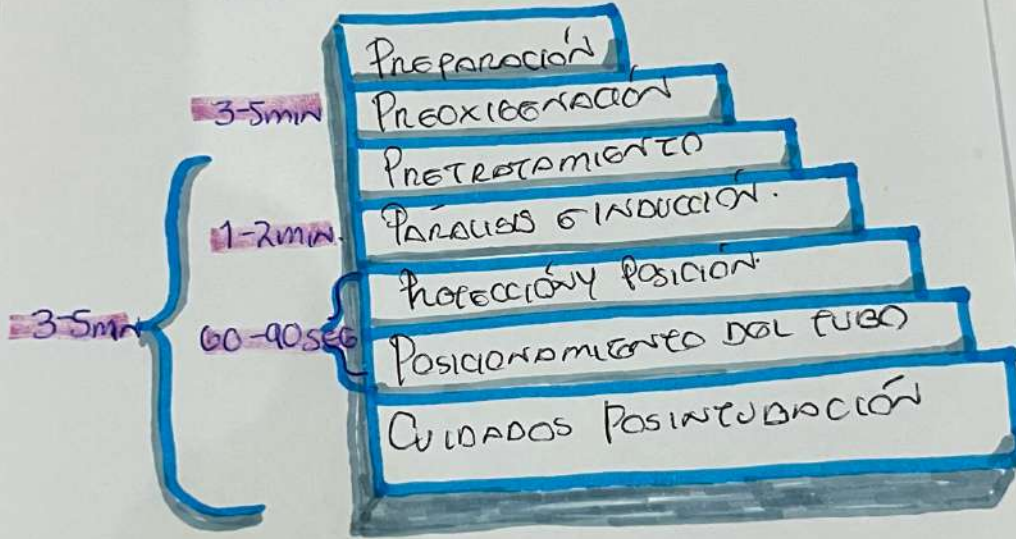 PREPARACIÓN
3-5min PREOXIGENACIÓN
PRETRATAMIENTO
1-2min. PARÁLISIS E INDUCCIÓN.
PROTECCIÓN Y POSICIÓN.
3-5min
60-90SEG
POSICIONAMIENTO DEL TUBO
CUIDADOS POSINTUBACIÓN